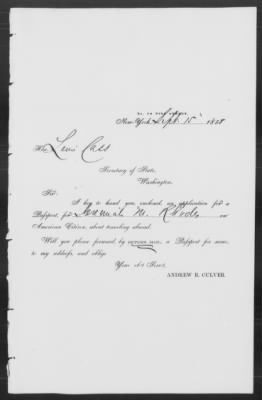 New-York, Sept. 15 1858
Hon. Lewis Cass
Secretary of State,
Washington.
Sir:
I beg to hand you enclosed an application for a
Passport, for M. Rhodes an
American Citizen, about traveling abroad.
Will you please forward, by RETURN MAIL, a Passport for same,
to my address, and oblige
Your Ob't Serv't,
ANDREW R. CULVER.